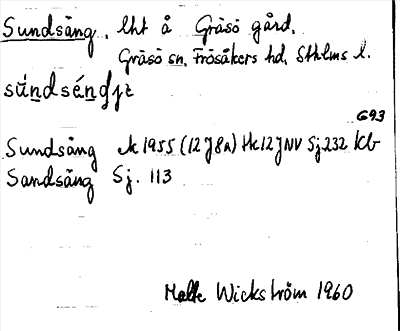 Sundsäng, lht å Gräsö gård.
Gräsö sn, Frösåkers hd, Sthlms l.
G93
Sundsäng k 1955 (12J8a) Hk12JNV Sj232 Kb
Sandsäng Sj. 113
Malte Wickström 1960